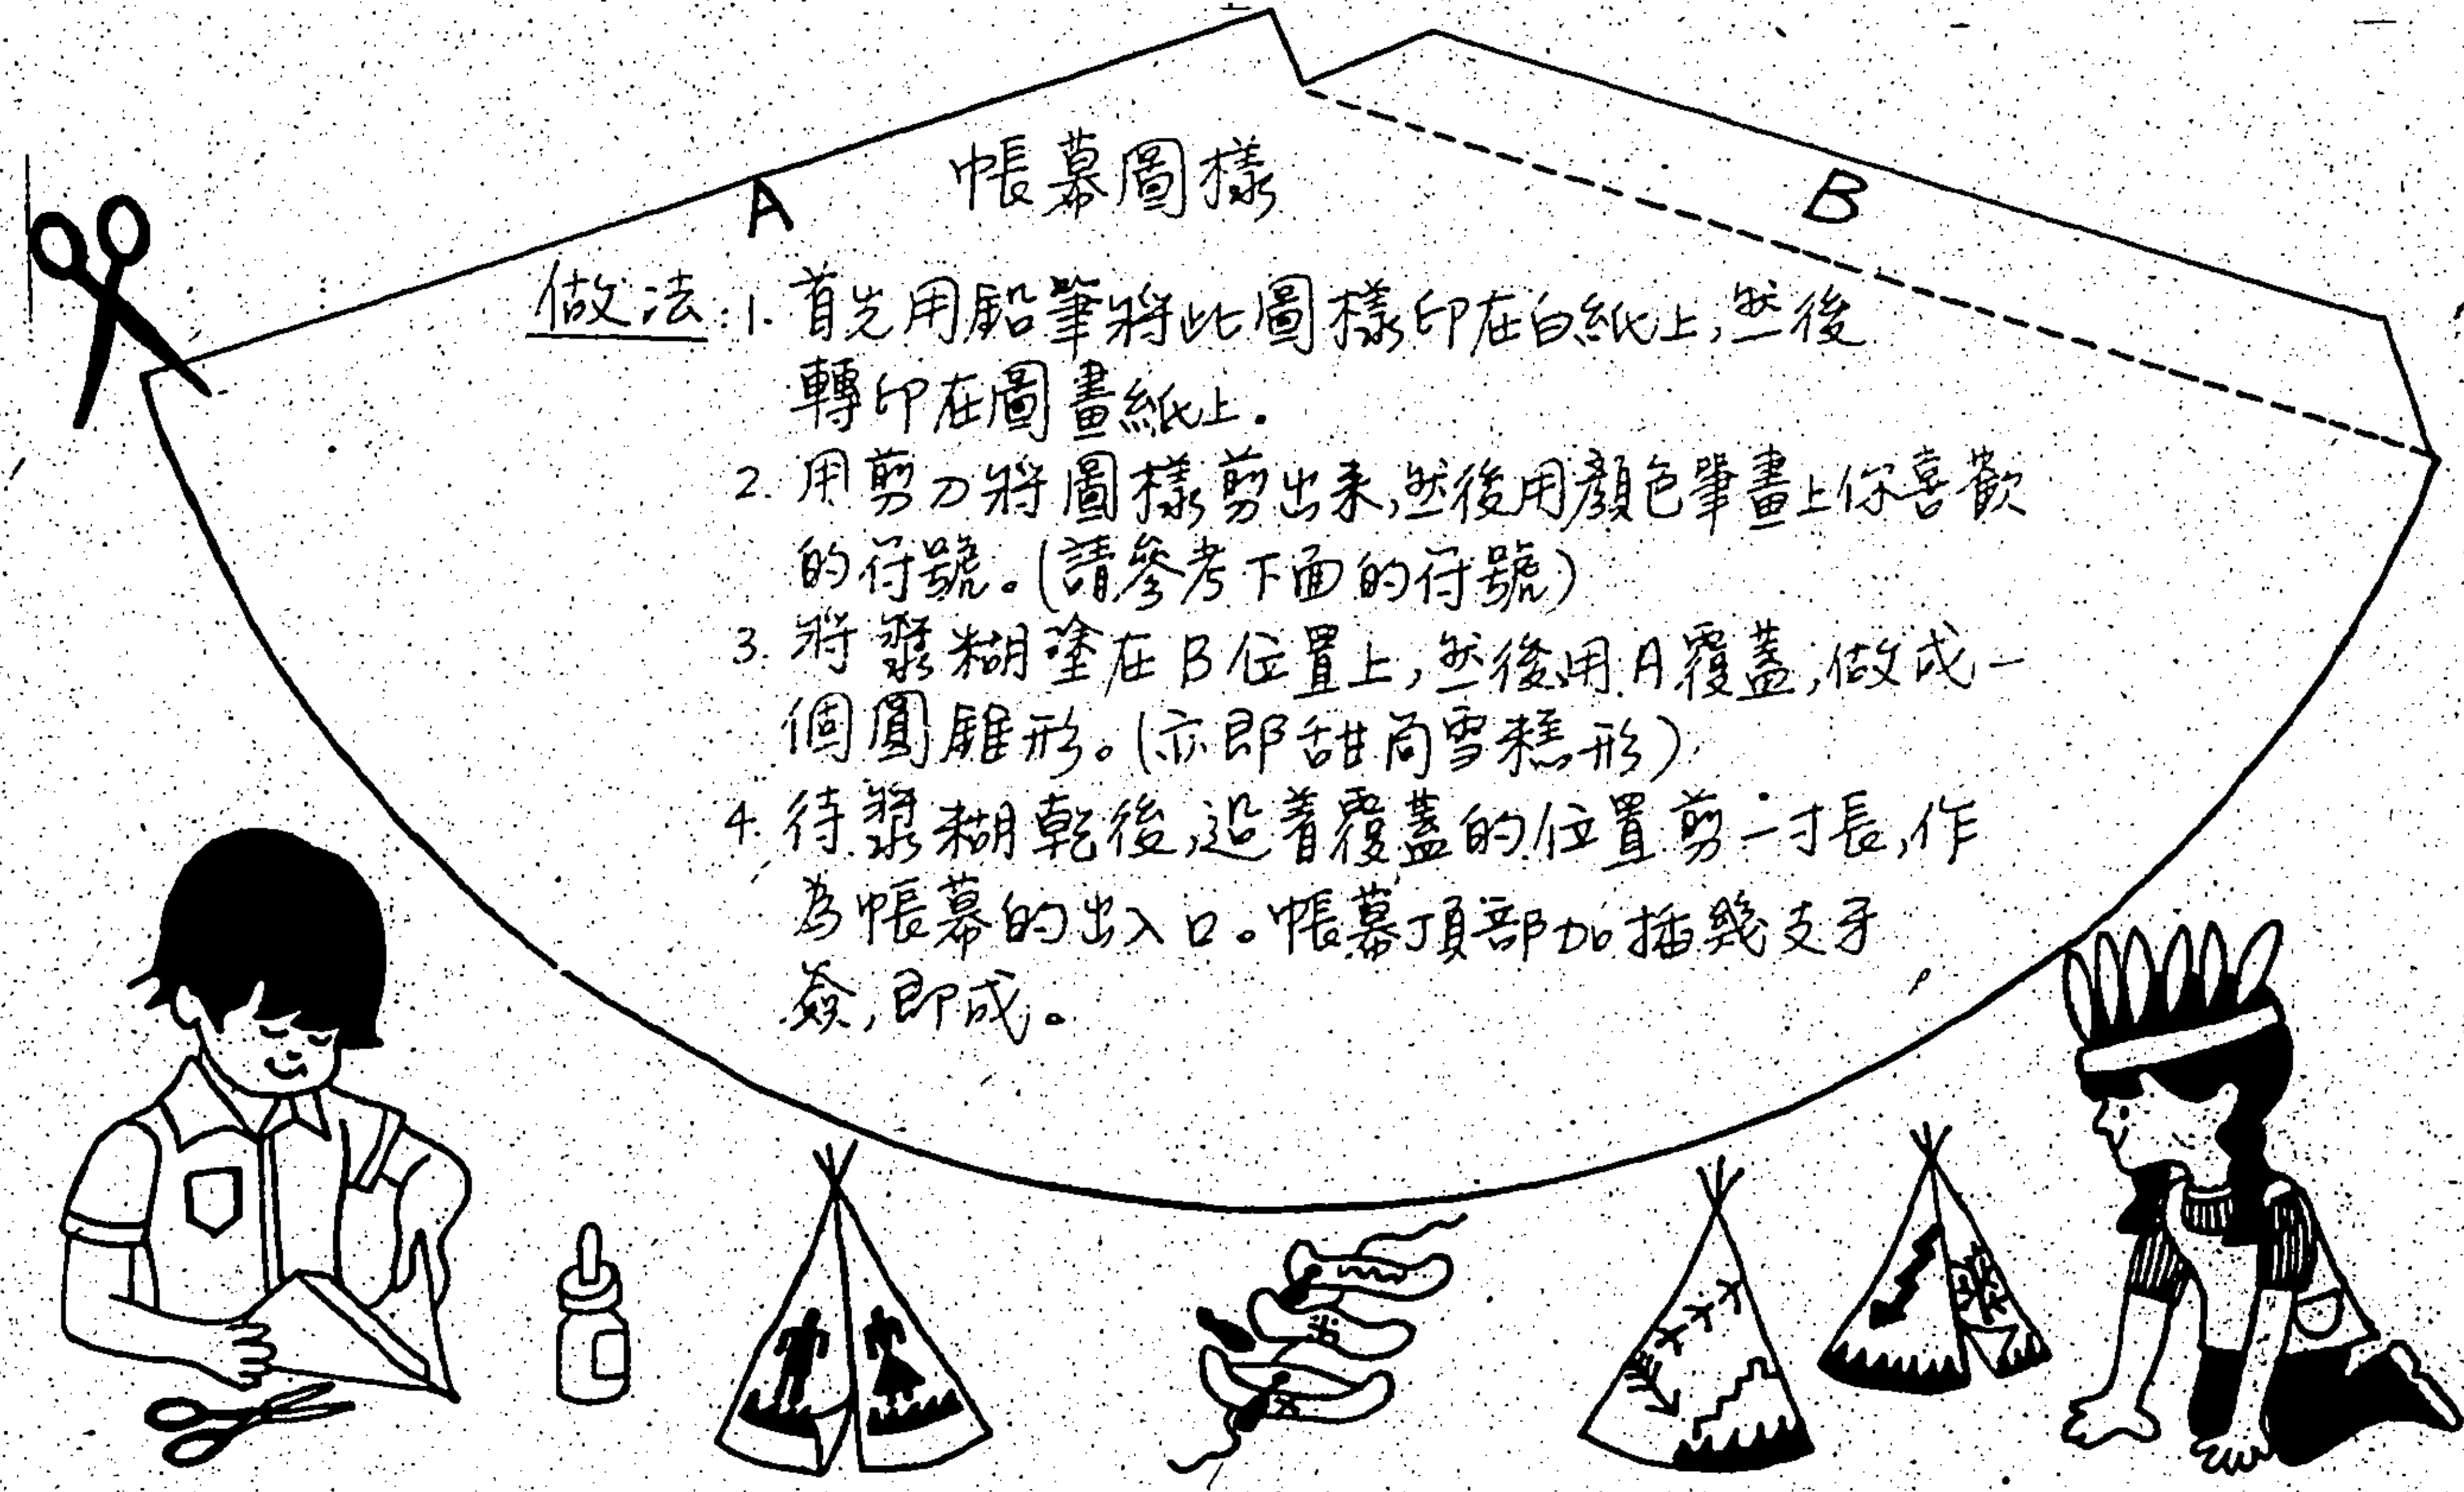 帳幕圖樣
A
B
做法:1. 首先用鉛筆將此圖樣印在白紙上,然後
轉印在圖畫紙上.
2. 用剪刀將圖樣剪出來,然後用顏色筆畫上你喜歡
的符號。(請參考下面的符號)
3. 將漿糊塗在B位置上,然後用A覆蓋,做成一
個圓錐形。(亦即甜筒雪糕形)
4. 待漿糊乾後,沿着覆蓋的位置剪一寸長,作
為帳幕的出入口。帳幕頂部加插幾支牙
簽,即成。